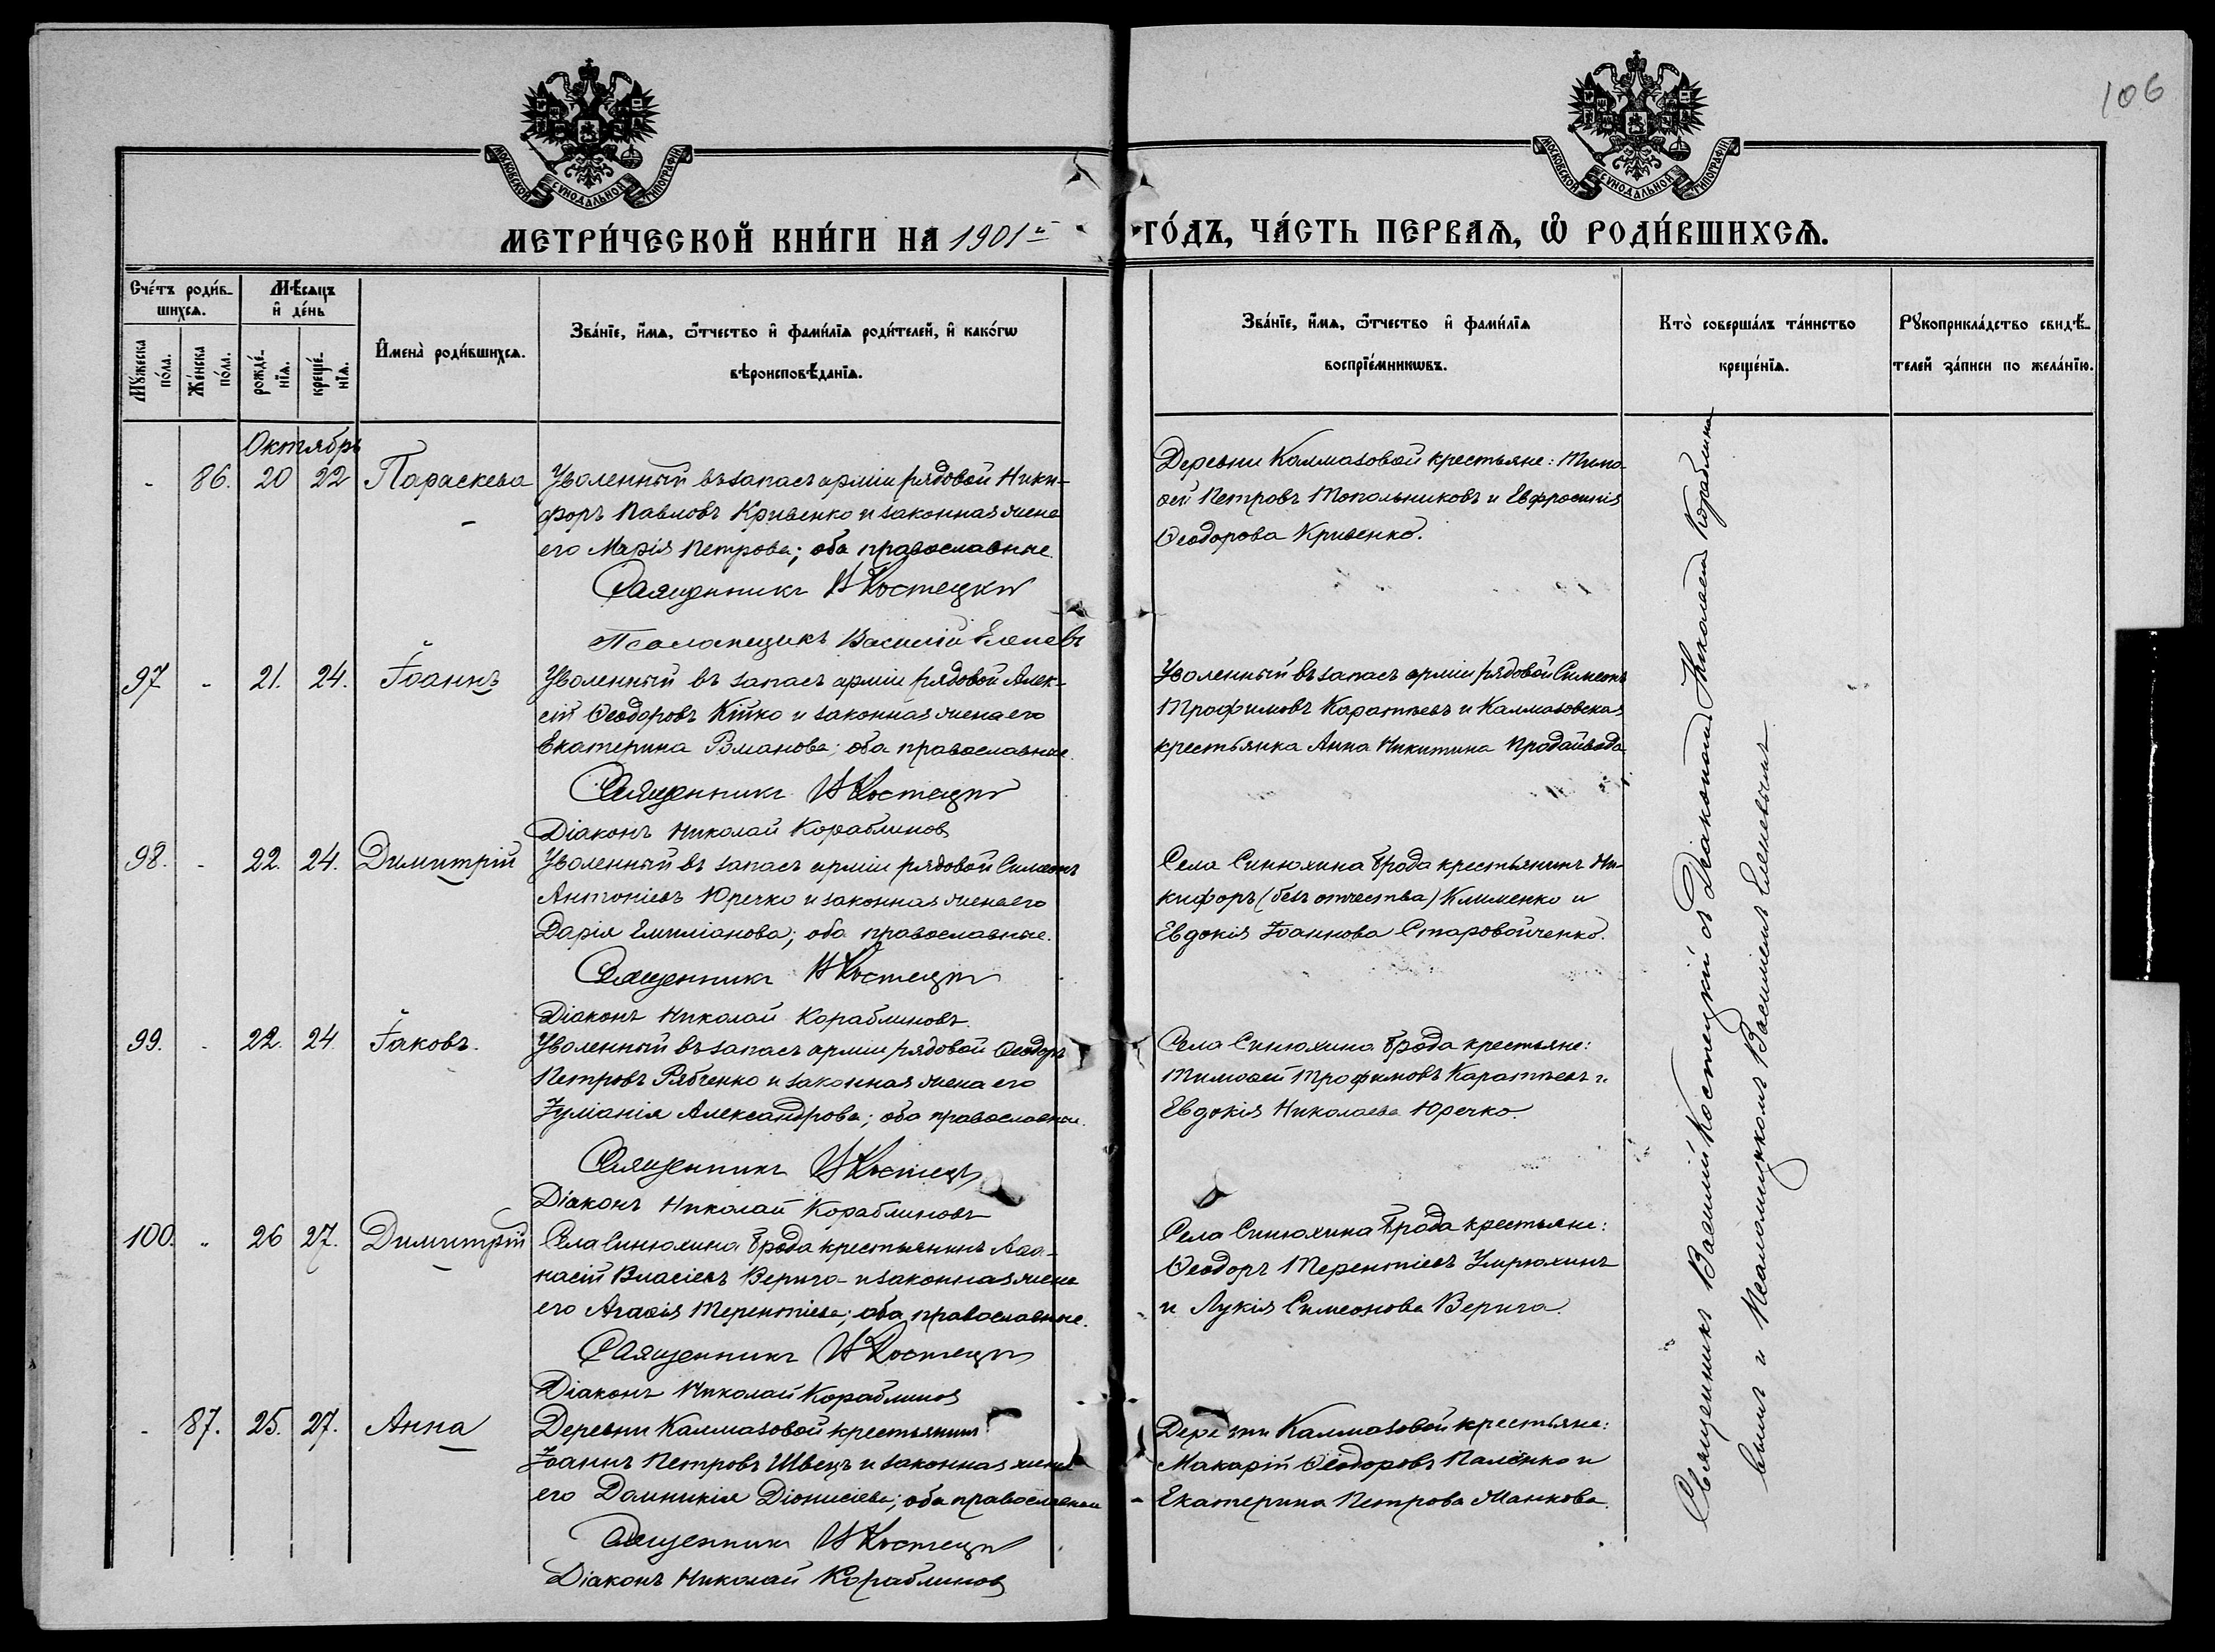 106
МОСКОВСКОЙ СѴНОДАЛЬНОЙ ТИПОГРАФІИ
МОСКОВСКОЙ СѴНОДАЛЬНОЙ ТИПОГРАФІИ
МЕТРИ́ЧЕСКОЙ КНИ́ГИ НА 1901й
ГО́ДЪ, ЧА́СТЬ ПЕРВАѦ, Ѽ РОДИ́ВШИХСѦ.
Сче́тъ роди́в-
шихсѧ.
Мѣ́сѧцъ
и҆ де́нь
Мꙋ́жеска
по́ла.
Же́нска
по́ла.
рожде́-
нїѧ.
креще́-
нїѧ.
И҆мена̀ роди́вшихсѧ.
Зва́нїе, и҆́мѧ, ѻ҆́тчество и҆ фами́лїѧ роди́телей, и҆ како́гѡ
вѣроисповѣ́данїѧ.
Зва́нїе, и҆́мѧ, ѻ҆́тчество и҆ фами́лїѧ
воспрїе́мникѡвъ.
Кто̀ соверша́лъ та́инство
креще́нїѧ.
Рꙋкоприкла́дство свидѣ́-
телей за́писи по жела́нїю.
Октябрь
- 86. 20 22 Параскева
Уволенный въ запасъ арміи рядовой Ники-
форъ Павловъ Кривенко и законная жена
его Марія Петрова; оба православные.
Священникъ В Костецкій
Псаломщикъ Василій Еленевъ
Деревни Калмазовой крестьяне: Тимо-
ѳей Петровъ Топольниковъ и Евфросинія
Ѳеодорова Кривенко.
97 - 21. 24. Іоаннъ
Уволенный въ запасъ арміи рядовой Алек-
сій Ѳеодоровъ Кійко и законная жена его
Екатерина Романова; оба православные.
Священникъ В Костецкій
Діаконъ Николай Кораблиновъ
Уволенный въ запасъ арміи рядовой Симеонъ
Трофимовъ Каратѣевъ и Калмазовская
крестьянка Анна Никитина Продайвода
98. - 22. 24. Димитрій
Уволенный въ запасъ арміи рядовой Симеонъ
Антоніевъ Юречко и законная жена его
Дарія Емиліанова; оба православные.
Священникъ В Костецкій
Діаконъ Николай Кораблиновъ.
Села Синюхина Брода крестьянинъ Ни-
кифоръ (безъ отчества) Клименко и
Евдокія Іоаннова Старовойченко.
99. - 22. 24 Іаковъ.
Уволенный въ запасъ арміи рядовой Ѳеодоръ
Петровъ Рябченко и законная жена его
Іуліанія Александрова; оба православные.
Священникъ В Костецкій
Діаконъ Николай Кораблиновъ
Села Синюхина Брода крестьяне:
Тимоѳей Трофимовъ Каратѣевъ и
Евдокія Николаева Юречко.
100. - 26 27. Димитрій
Села Синюхина Брода крестьянинъ Аѳа-
насій Власіевъ Верига и законная жена
его Агаѳія Терентіева; оба православные.
Священникъ В Костецкій
Діаконъ Николай Кораблиновъ
Села Синюхина Брода крестьяне:
Ѳеодоръ Терентіевъ
и Лукія Симеонова Верига.
- 87. 25. 27. Анна
Деревни Калмазовой крестьянинъ
Іоаннъ Петровъ Швецъ и законная жена
его Домникія Діонисіева; оба православные
Священникъ В Костецкій
Діаконъ Николай Кораблиновъ
Деревни Калмазовой крестьяне:
Макарій Ѳеодоровъ Паленко и
Екатерина Петрова Манкова.
Священникъ Василій Костецкій съ Діакономъ Николаемъ Кораблино-
вымъ и Псаломщикомъ Василіемъ Еленевымъ